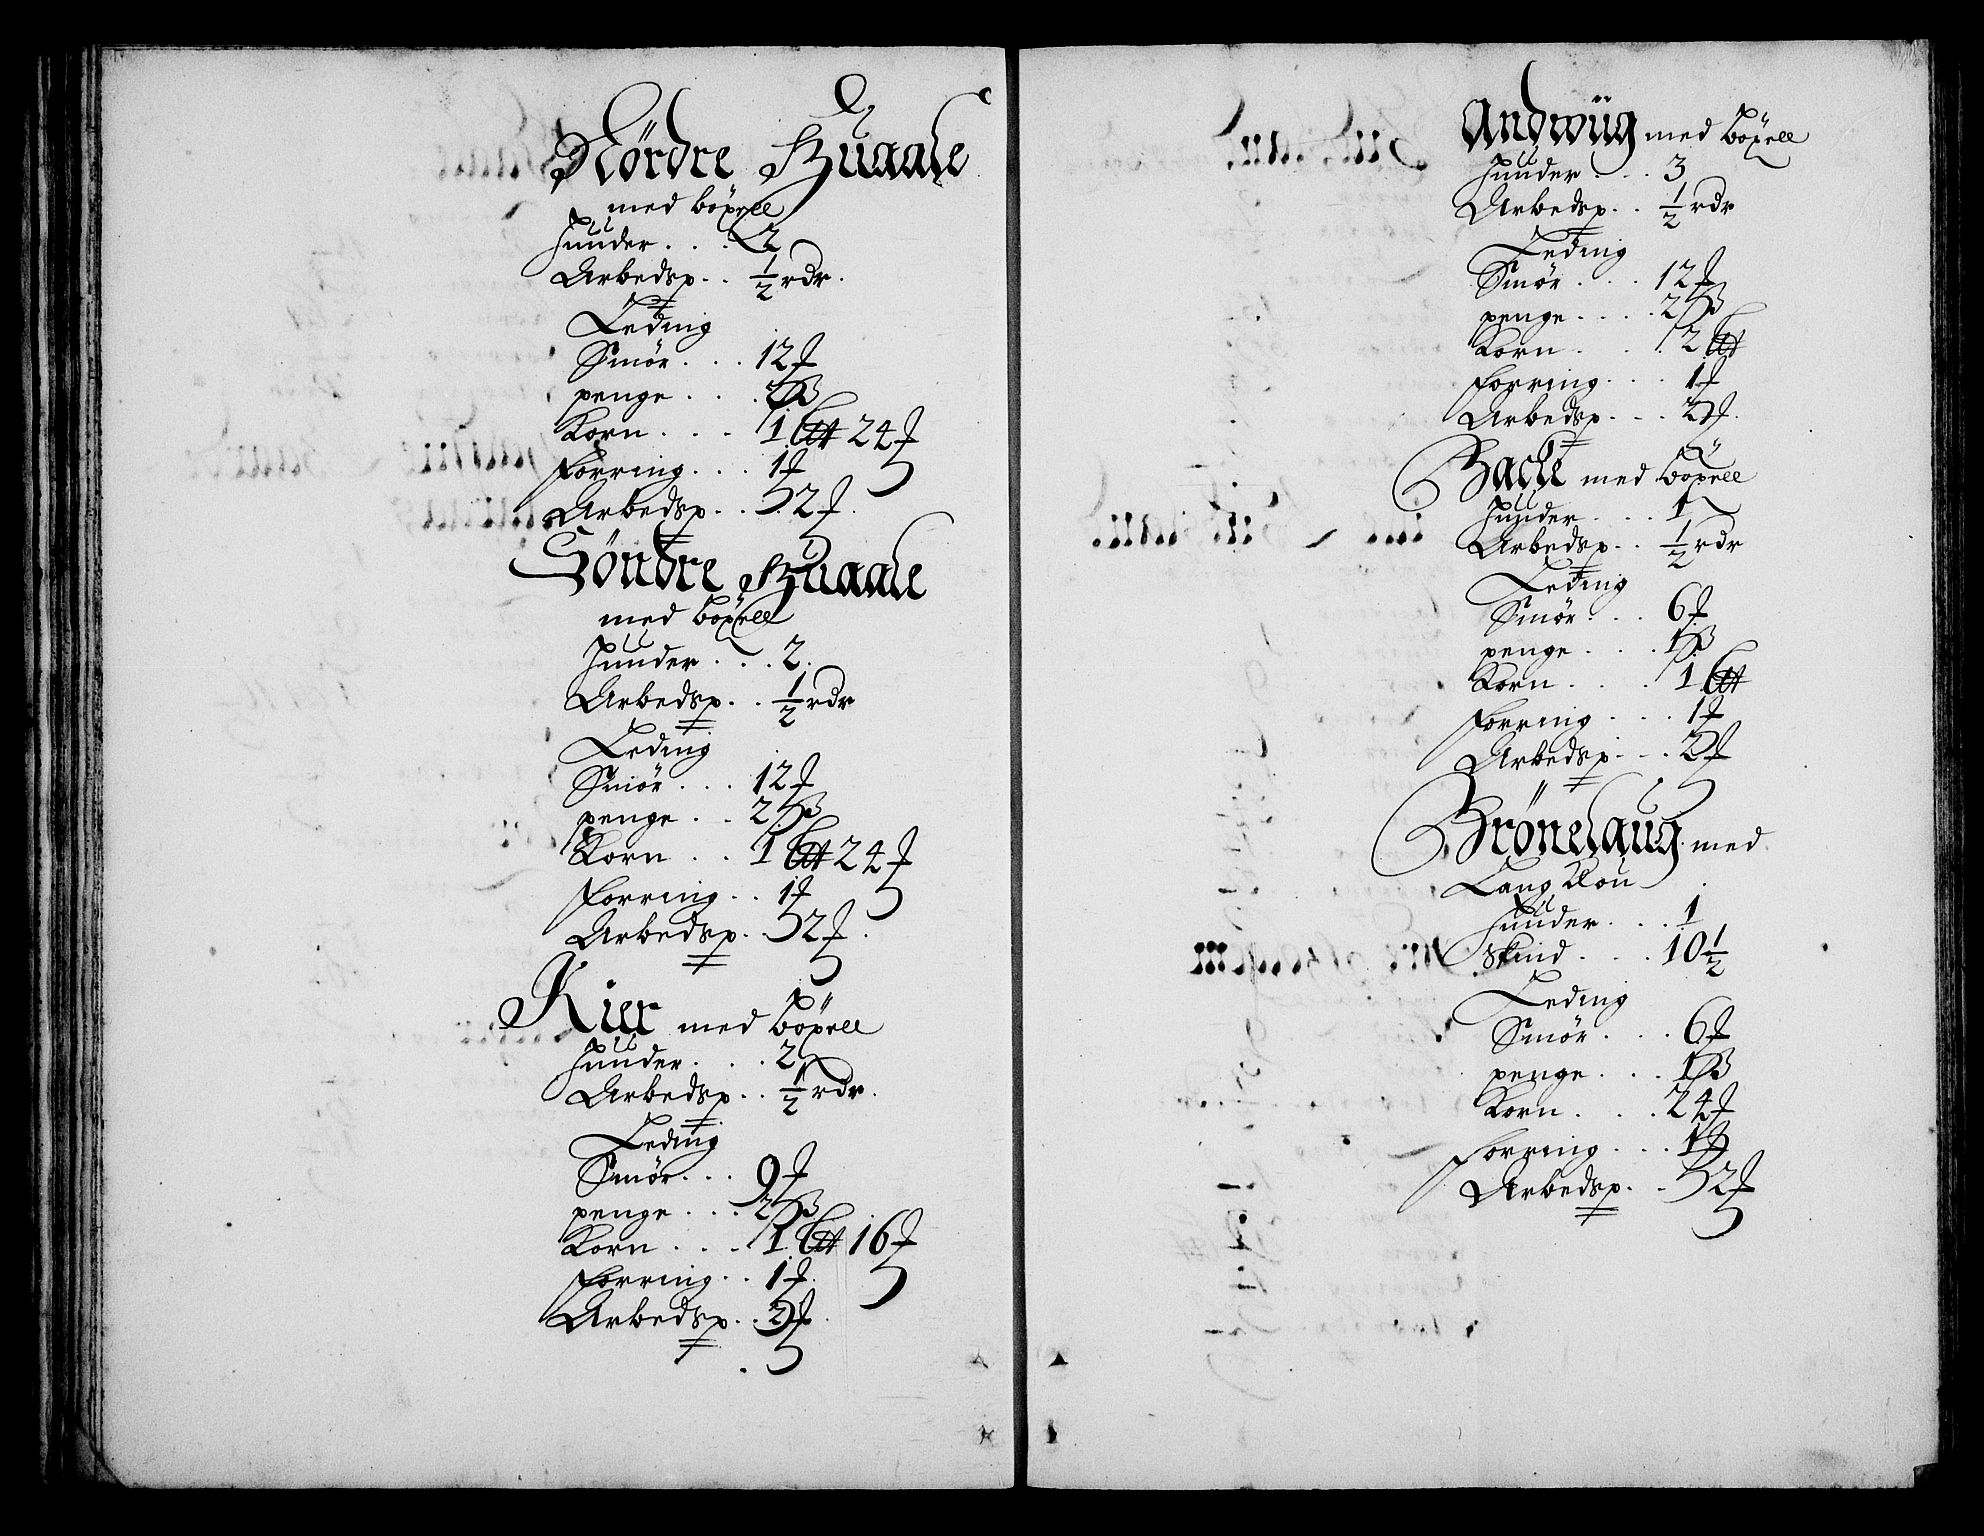 Nördre Buaale
med böxell
Huuder . . . 2
Arbedsp. . ½ rdr.
Leding
Smör . . . 12 ₰
penge . . . 2 ß
Korn . . . 1 Ctt 24 ₰
Forring . . . 1 ₰
Arbedsp. . . 2 ₰.
Söndre Buaale
med böxell
Huuder . . . 2.
Arbedsp. . ½ rdr
Leding
Smör . . . 12 ₰
penge . . 2 ß
Korn . . 1 Ctt 24 ₰
Forring . . 1 ₰
Arbedsp. . 2 ₰.
Kier med böxell
Huuder . . . 2
Arbedsp. . ½ rdr.
Leding
Smör . . . 9 ₰
penge . . . 2 ß
Korn . . . 1 Ctt 16 ₰
Forring . . 1 ₰.
Arbedsp. . 2 ₰.
Andwüg med böxell
Huuder . . . 3
Arbedsp. . ½ rdr
Leding
Smör . . . 12 ₰
penge . . . . 2 ß
Korn . . . 2 Ctt
Forring . . . 1 ₰
Arbedsp. . . 2 ₰.
Backe med böxell
Huuder . . . 1
Arbedsp. . ½ rdr
Leding
Smör . . . 6 ₰
penge . . . 1 ß
Korn . . . . 1 Ctt
Forring . . . 1 ₰
Arbedsp. . . 2 ₰
Brönelaug med
Lang Kou
Huuder . . . 1
Skind . . . . 10 ½
Leding
Smör . . . 6 ₰
penge . . . 1 ß
Korn . . . . 24 ₰
Forring . . . 1 ₰
Arbedsp. . 2 ₰